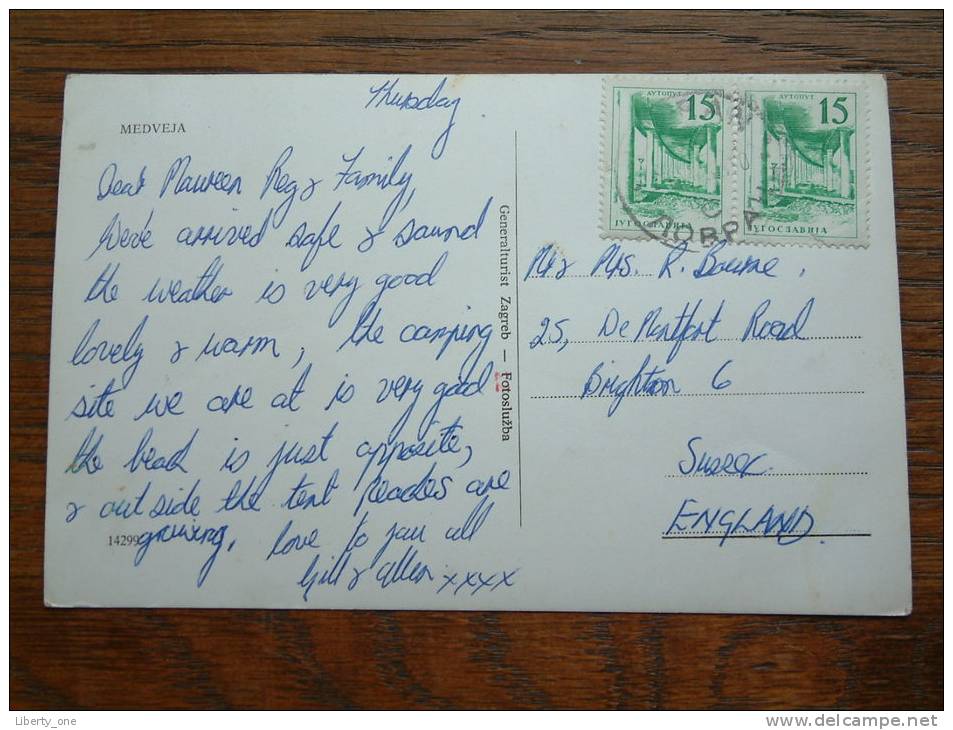 MEDVEJA
Thursday
Dear Maureen Reg & Family,
Weve arrived safe & sound
the weather is very good
lovely & warm, the camping
site we are at is very good
the beach is just opposite,
& outside the tent Peaches are
growing, love to you all
Gill & Allen xxxx
14299
Generalturist Zagreb — Fotoslužba
АУТОПУТ
15
ЈУГОСЛАВИЈА
АУТОПУТ
15
ЈУГОСЛАВИЈА
Mr & Mrs. R. Bourne,
25, De Montfort Road
Brighton 6
Sussex.
ENGLAND.
Liberty_one
www.delcampe.net